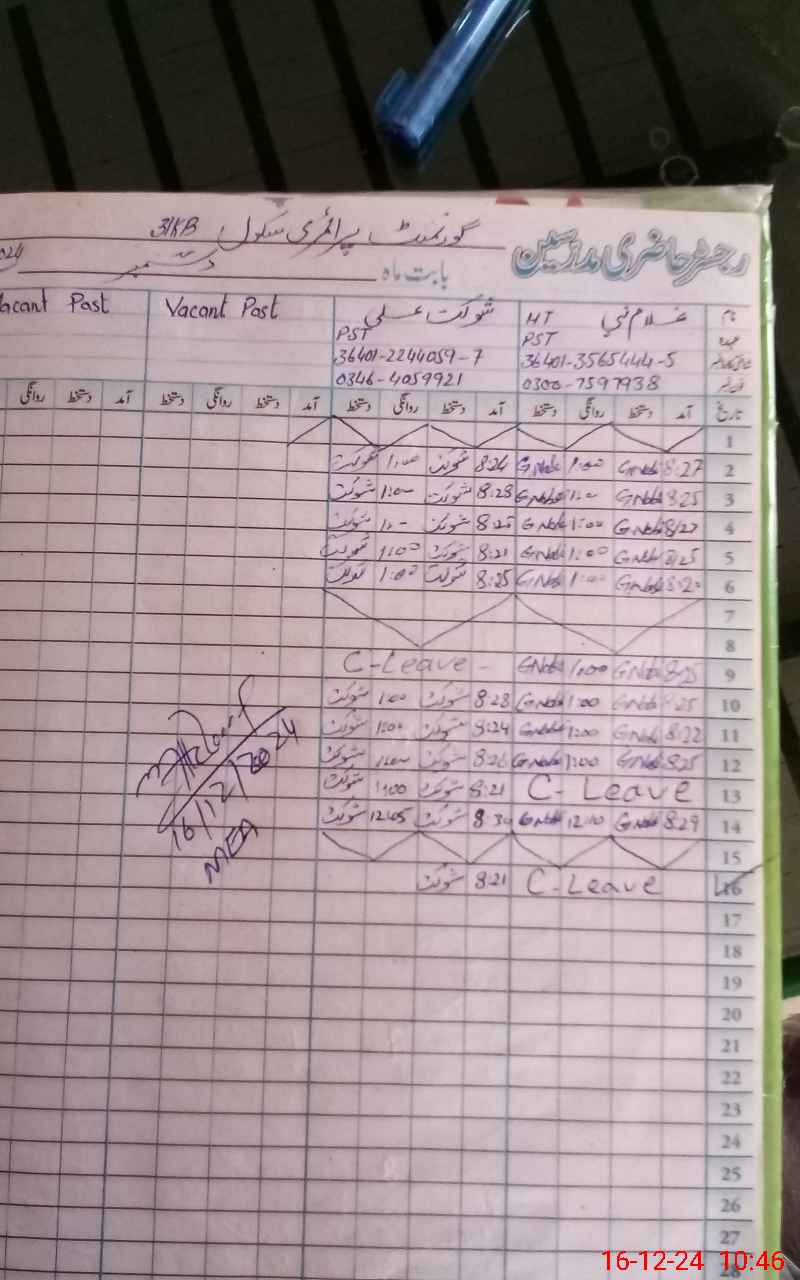 رجسٹر حاضری مدرسین گورنمنٹ پرائمری سکول 31KB
بابت ماہ دسمبر
نام غلام نبی HT شوکت علی Vacant Post Vacant Post
عہدہ PST PST
36401-3565444-5 36401-2244059-7
0300-7597938 0346-4059921
تاریخ آمد دستخط روانگی دستخط آمد دستخط روانگی دستخط آمد دستخط روانگی دستخط آمد دستخط روانگی
1
2 8:27 GNabi 1:00 GNabi 8:24 شوکت 1:00 شوکت
3 8:25 GNabi GNabi 8:28 شوکت شوکت
4 GNabi 1:00 GNabi شوکت شوکت
5 8:25 GNabi 1:00 GNabi 8:21 شوکت 1:00 شوکت
6 GNabi 1:00 GNabi 8:25 شوکت 1:00 شوکت
7
8
9 8:25 GNabi 1:00 GNabi C-Leave -
10 8:25 GNabi 1:00 GNabi 8:28 شوکت 1:00 شوکت
11 8:22 GNabi 1:00 GNabi 8:24 شوکت 1:00 شوکت
12 8:25 GNabi 1:00 GNabi 8:26 شوکت 1:00 شوکت
13 C-Leave 8:21 شوکت 1:00 شوکت
14 8:29 GNabi 12:10 GNabi 8:30 شوکت 12:45 شوکت
15
16 C-Leave 8:21 شوکت
16/12/2024
MEA
17
18
19
20
21
22
23
24
25
26
27
28
16-12-24 10:46